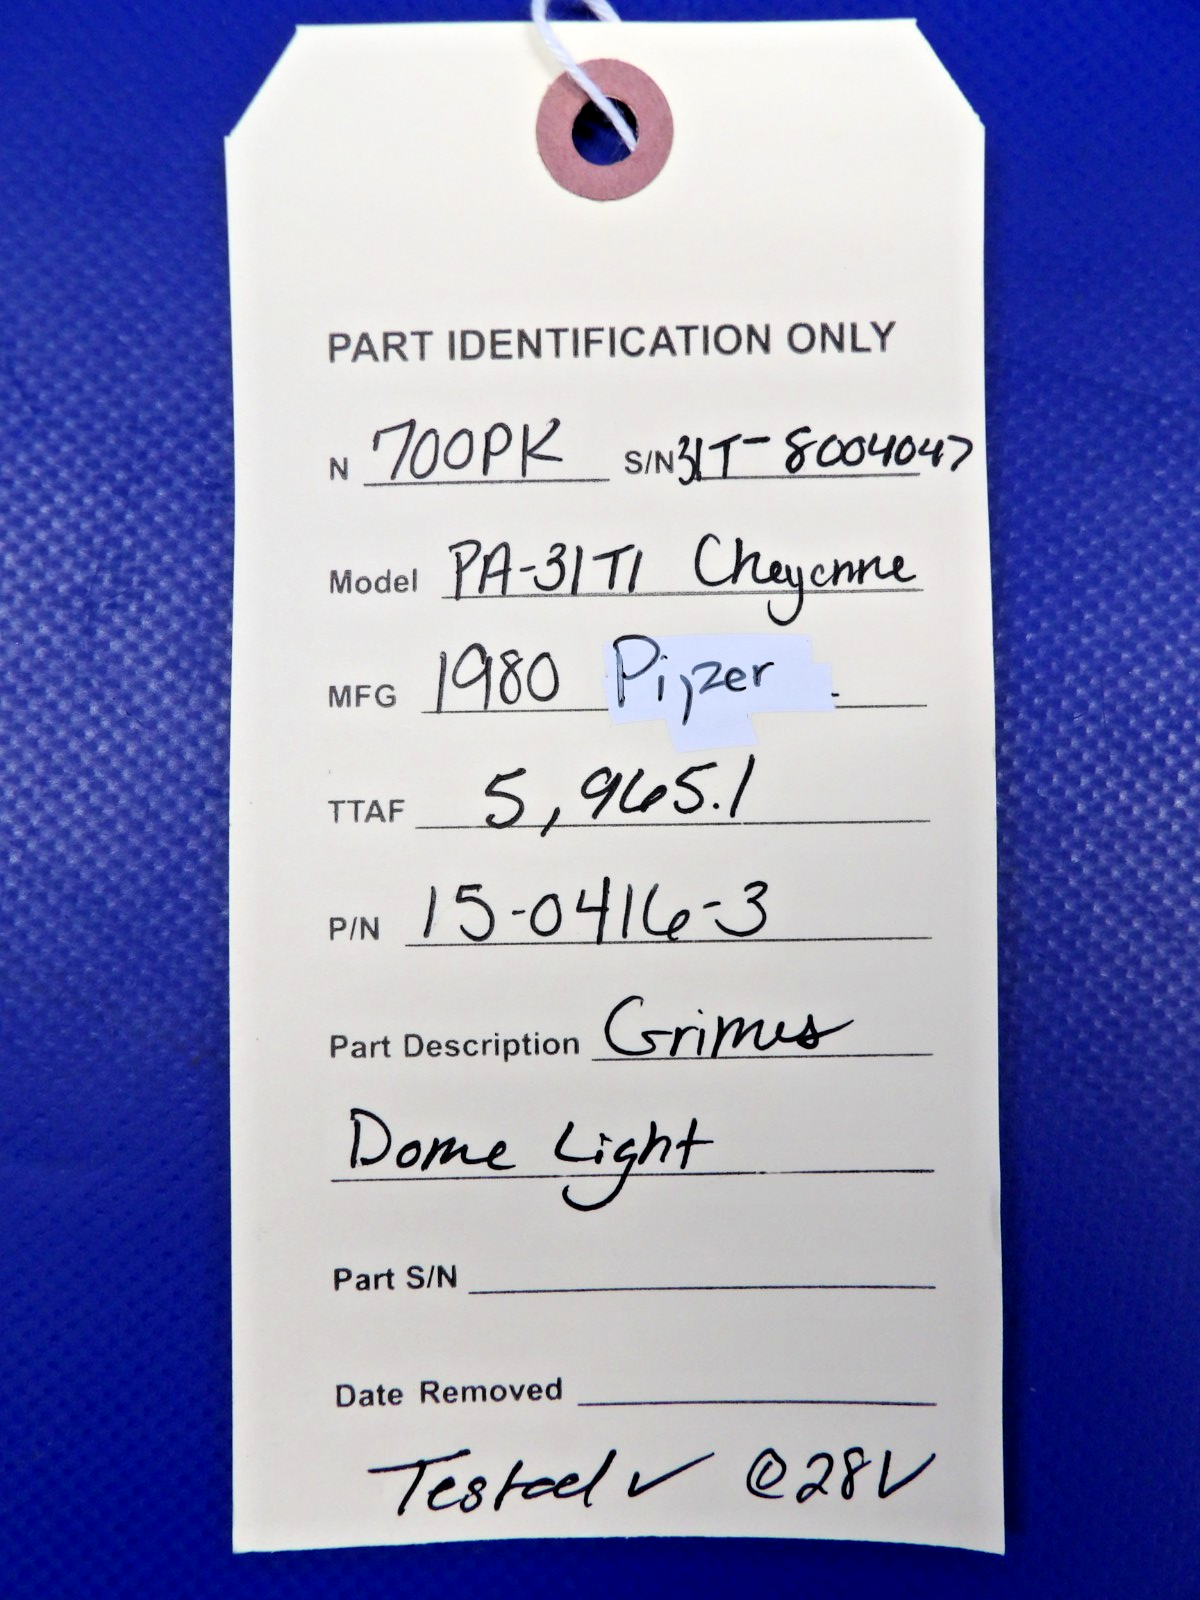 PART IDENTIFICATION ONLY
N 700PK S/N 31T-8004047
Model PA-31T1 Cheyenne
MFG 1980 Piper
TTAF 5,965.1
P/N 15-0416-3
Part Description Grimes
Dome Light
Part S/N
Date Removed
Tested ✓ @28V